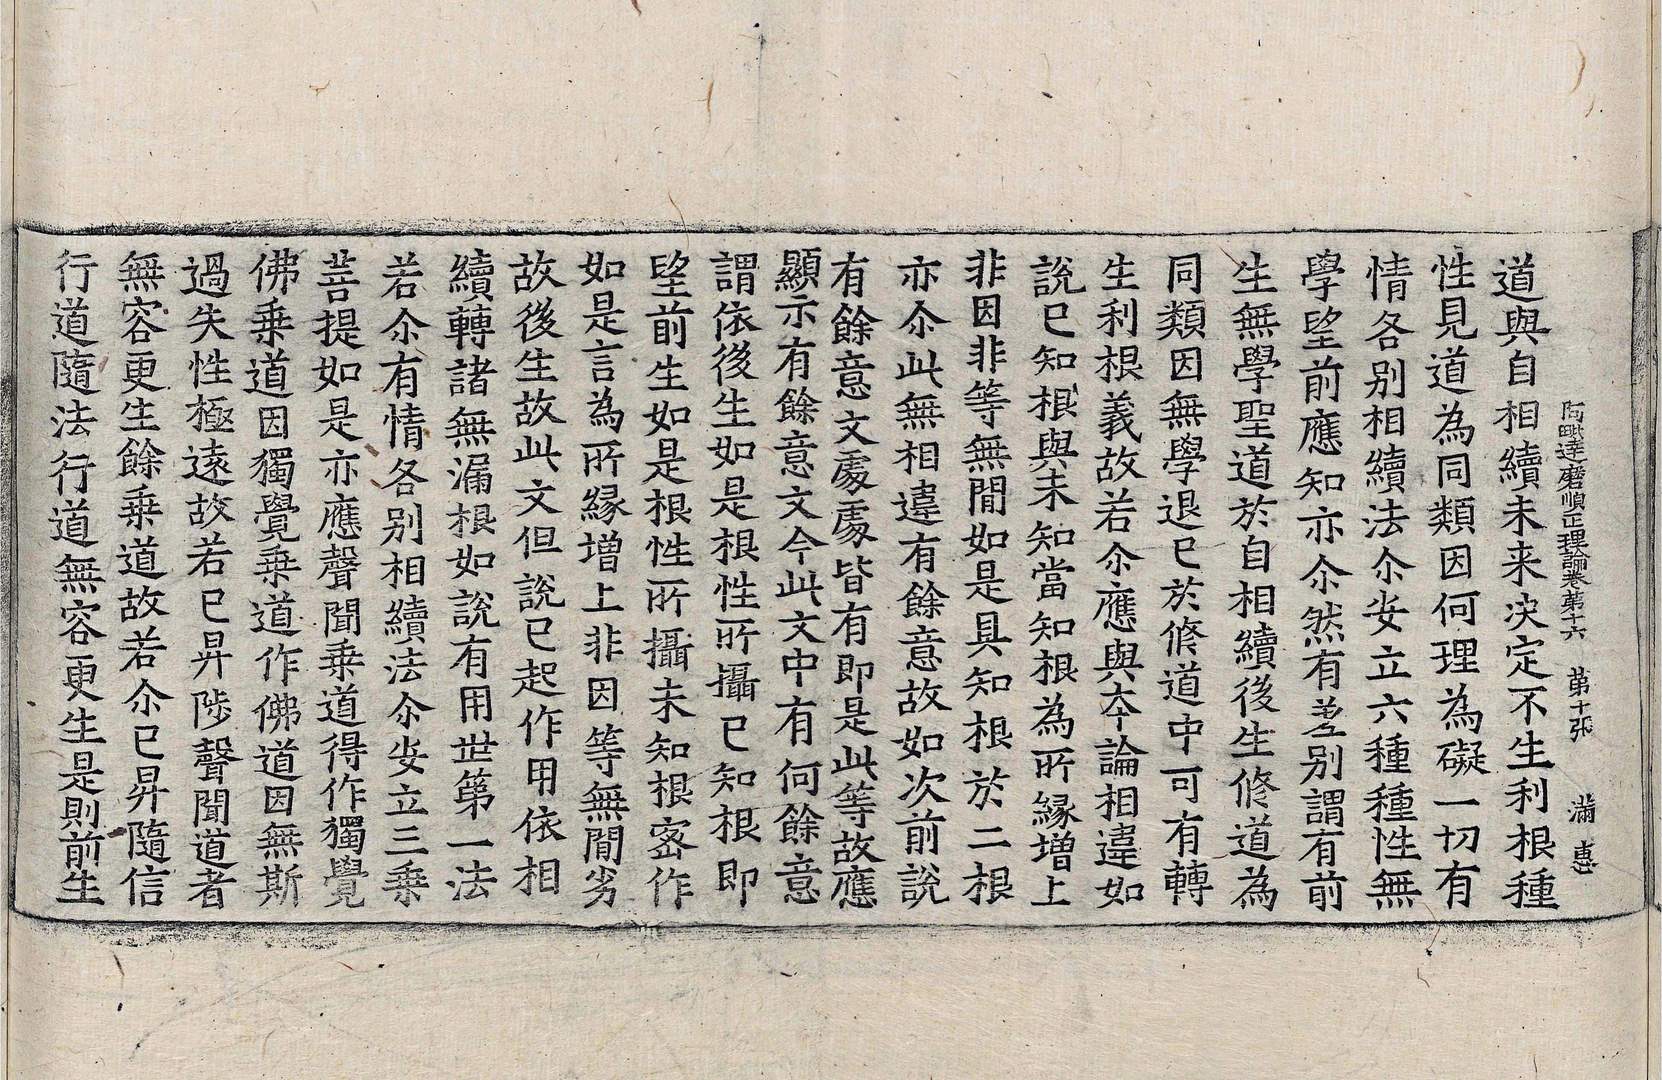 阿毗達磨順正理論卷第十六 第十張 滿 惠
道與自相續未来決定不生利根種
性見道為同類因何理為礙一切有
情各别相續法尒安立六種種性無
學望前應知亦尒然有差别謂有前
生無學聖道於自相續後生修道為
同類因無學退已於修道中可有轉
生利根義故若尒應與夲論相違如
說已知根與未知當知根為所縁增上
非因非等無間如是具知根於二根
亦尒此無相違有餘意故如次前說
有餘意文處處皆有即是此等故應
顯示有餘意文今此文中有何餘意
謂依後生如是根性所攝已知根即
望前生如是根性所攝未知根宻作
如是言為所縁增上非因等無間劣
故後生故此文但說已起作用依相
續轉諸無漏根如說有用世第一法
若尒有情各别相續法尒安立三乗
菩提如是亦應聲聞乗道得作獨覺
佛乗道因獨覺乗道作佛道因無斯
過失性極遠故若已昇陟聲聞道者
無容更生餘乗道故若尒已昇隨信
行道隨法行道無容更生是則前生